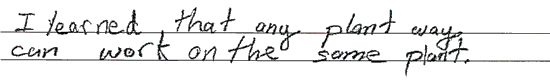 I learned, that any plant way
can work on the same plant.